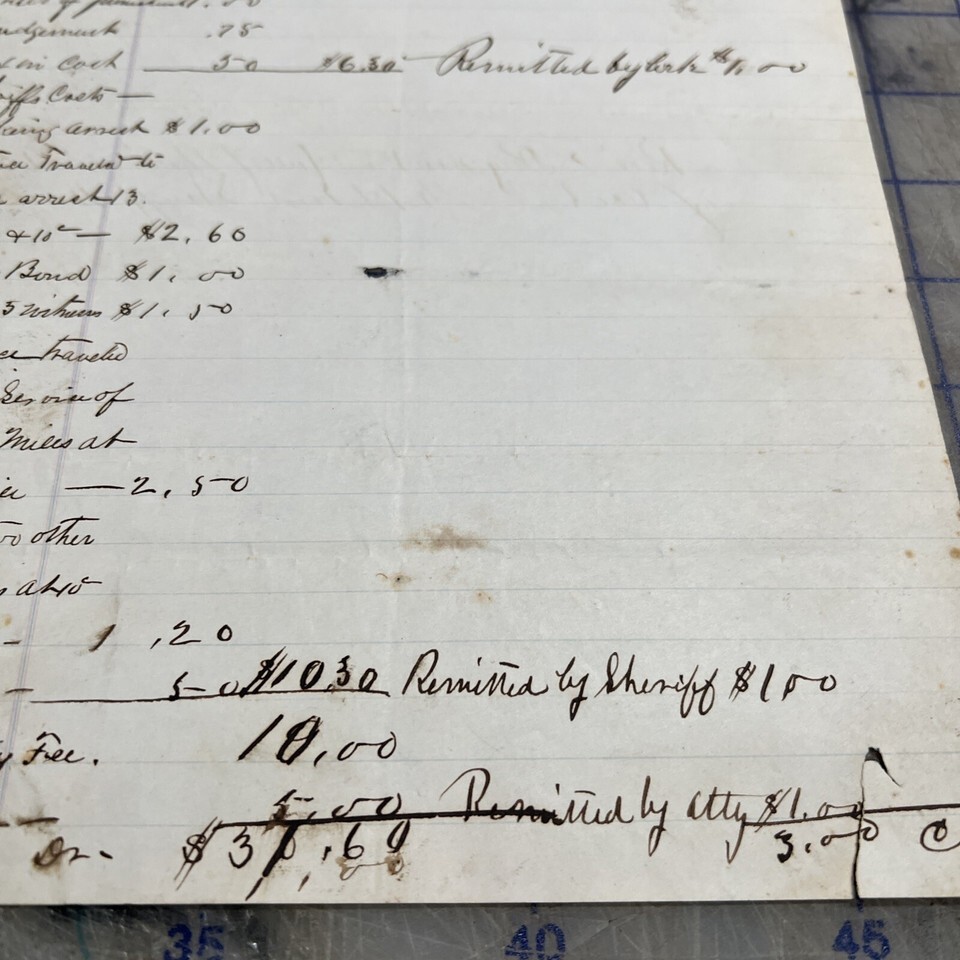 .75
in Cost 50 $6.30 Remitted by Clerk $1.00
Costs —
arrest $1.00
Traveled to
arrest 13.
— $2.60
Bond $1.00
5 witness $1.50
traveled
Service of
Miles at
— 2.50
other
at 10
- 1.20
- 50 $10 30 Remitted by Sheriff $1 00
Fee. 10.00
5.00 Remitted by Atty $1.00
Dr. $31.60 3.00 C
35 40 45